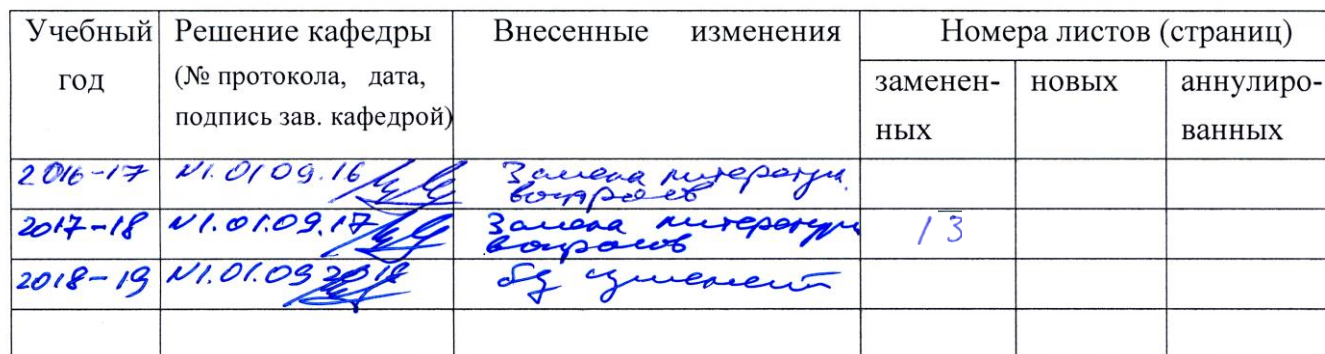 Учебный год Решение кафедры (№ протокола, дата, подпись зав. кафедрой) Внесенные изменения Номера листов (страниц)
заменен-ных новых аннулиро-ванных
2016-17 №1. 01.09.16 Замена литератур.
вопросов
2017-18 №1. 01.09.17 Замена литературы 13
вопросов
2018-19 №1. 01.09 2018 без изменений